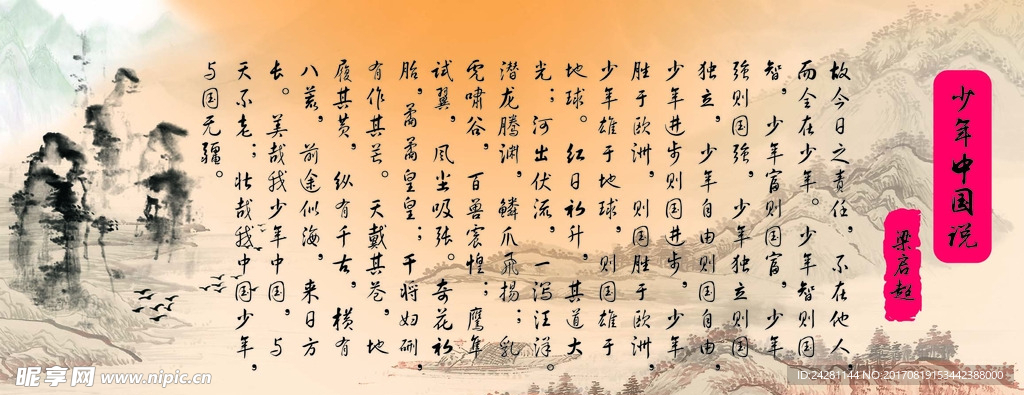 少年中国说
梁启超
故今日之责任，不在他人，
而全在少年。少年智则国
智，少年富则国富，少年
强则国强，少年独立则国
独立，少年自由则国自由，
少年进步则国进步，少年
胜于欧洲，则国胜于欧洲，
少年雄于地球，则国雄于
地球。红日初升，其道大
光；河出伏流，一泻汪洋。
潜龙腾渊，鳞爪飞扬；乳
虎啸谷，百兽震惶；鹰隼
试翼，风尘吸张。奇花初
胎，矞矞皇皇；干将妇硎，
有作其芒。天戴其苍，地
履其黄，纵有千古，横有
八荒，前途似海，来日方
长。美哉我少年中国，与
天不老；壮哉我中国少年，
与国无疆。
昵享网 www.nipic.cn
ID:24281144 NO:20170819153442388000